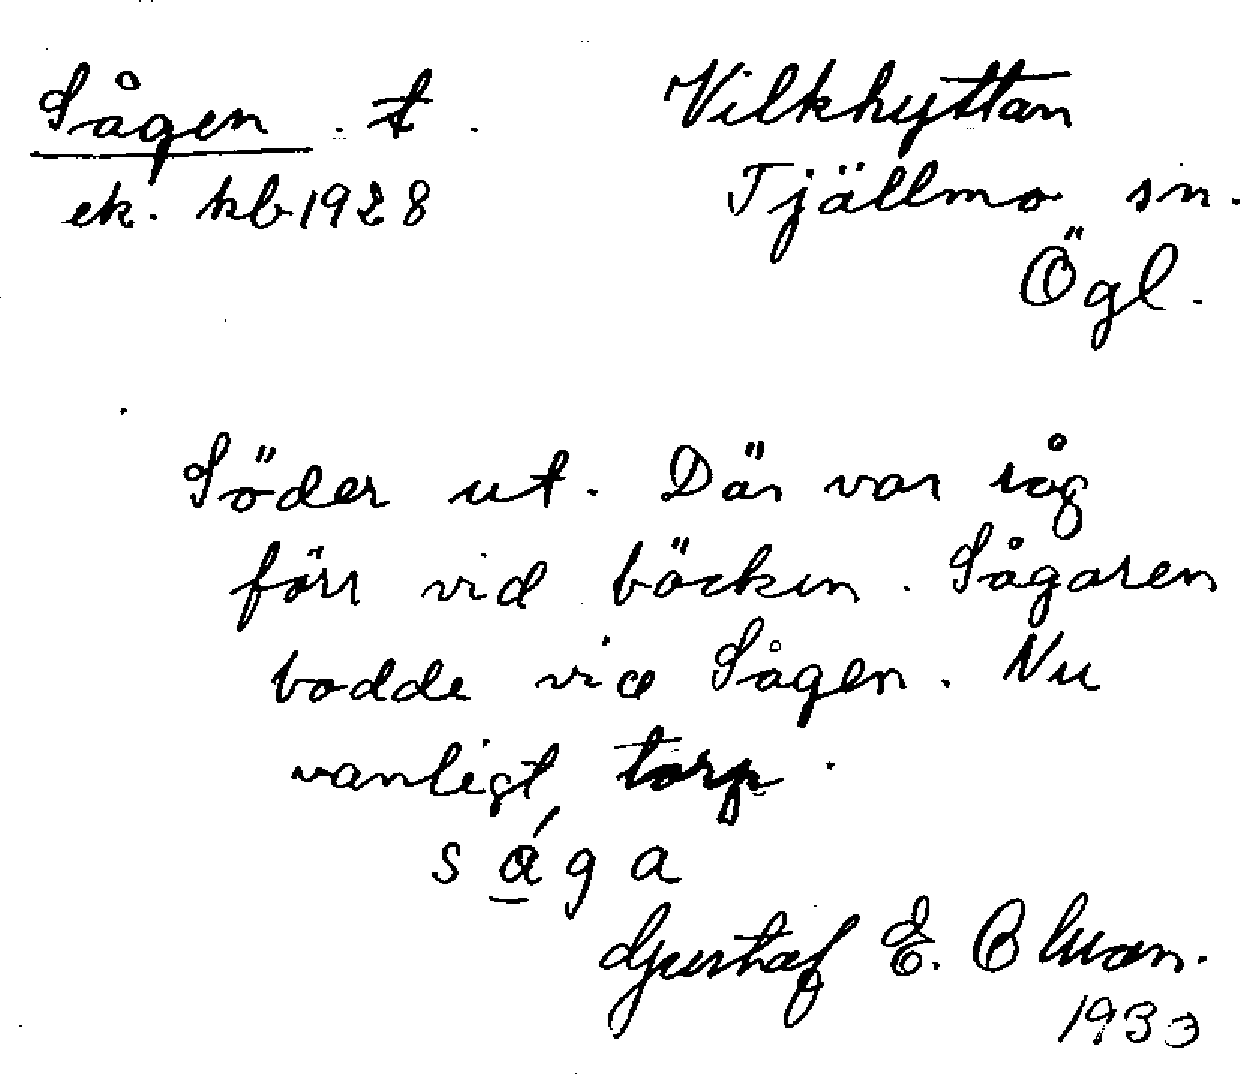 Sågen . t .
Vilkhyttan
ek. kb 1928
Tjällmo sn.
Ögl.
Söder ut. Där var såg
förr vid bäcken. Sågaren
bodde vid Sågen. Nu
vanligt torp.
såga
Gustaf E.
1933